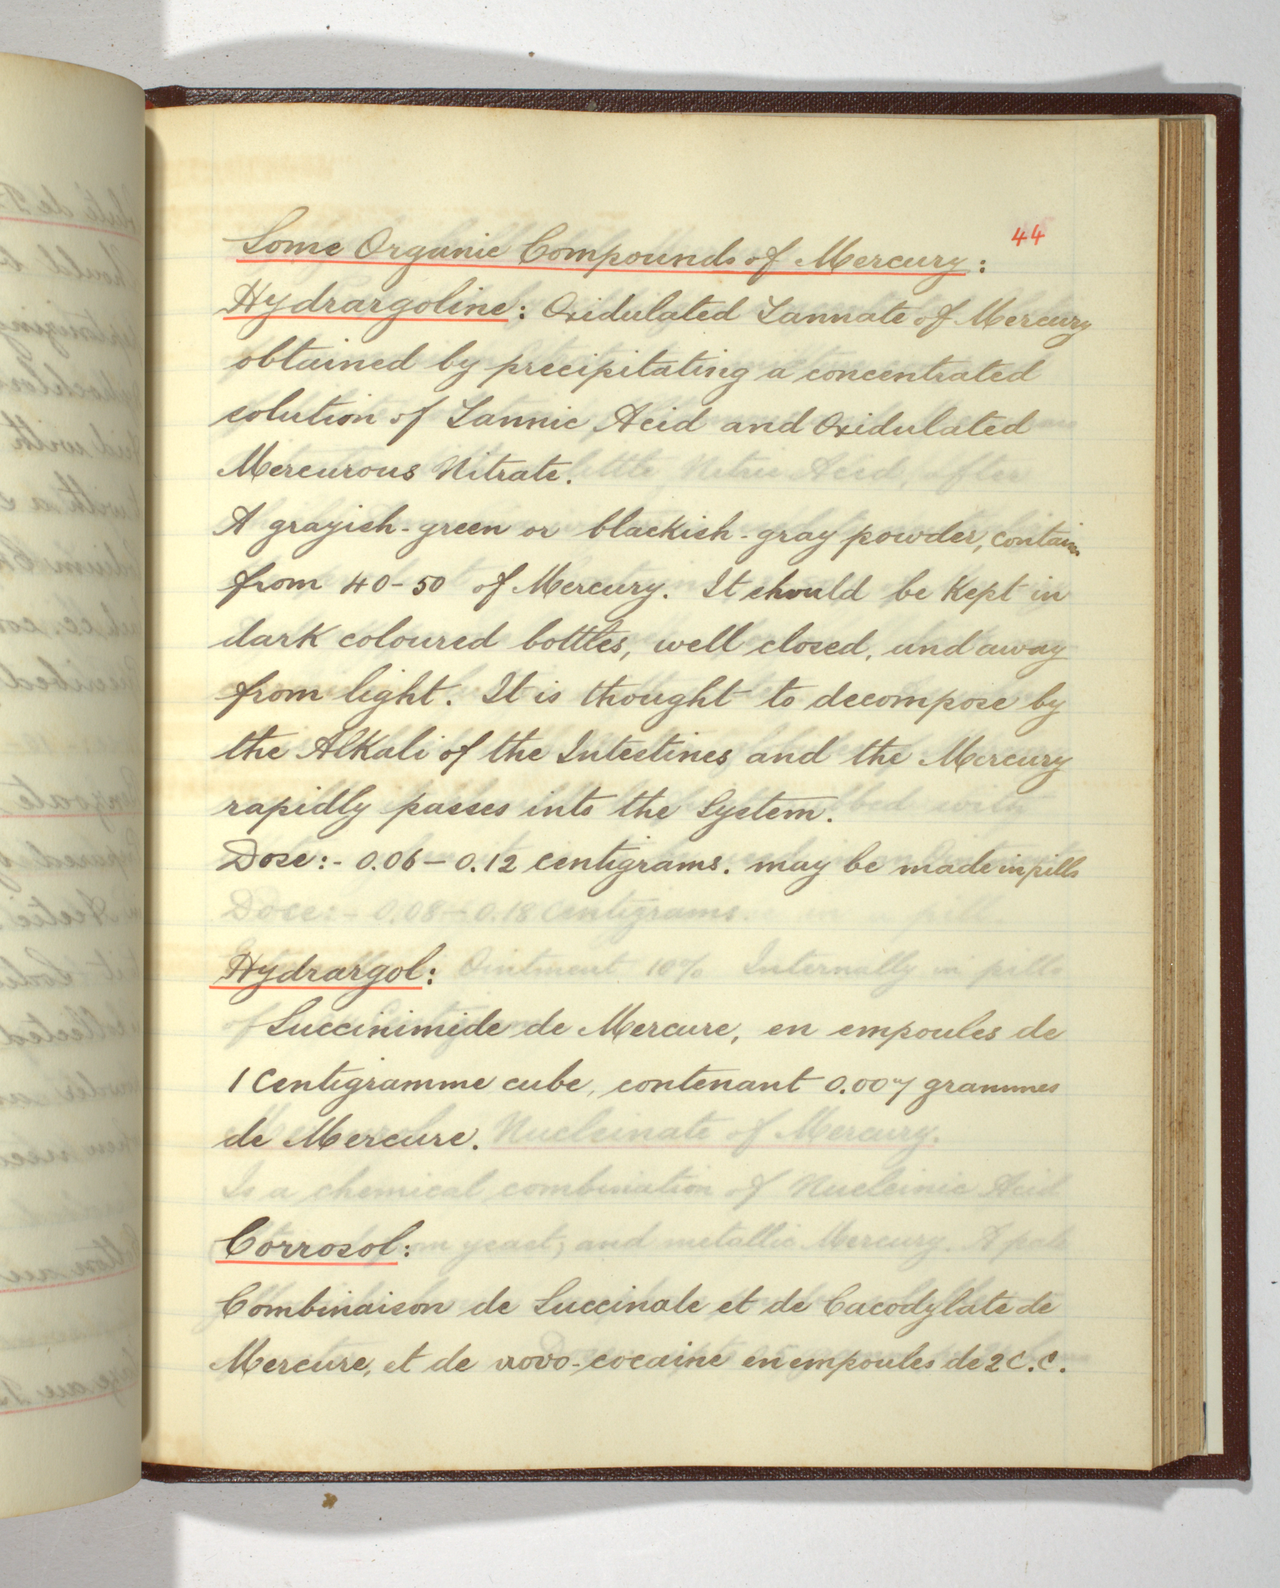 44
Some Organic Compounds of Mercury:
Hydrargoline: Oxidulated Tannate of Mercury
obtained by precipitating a concentrated
solution of Tannic Acid and Oxidulated
Mercurous Nitrate.
A grayish-green or blackish-gray powder, contains
from 40-50 of Mercury. It should be Kept in
dark coloured bottles, well closed, and away
from light. It is thought to decompose by
the AlKali of the Intestines and the Mercury
rapidly passes into the System.
Dose:- 0.06 - 0.12 centigrams. may be made in pills
Hydrargol:
Succinimide de Mercure, en empoules de
1 Centigramme cube, contenant 0.007 grammes
de Mercure.
Corrosol:
Combinaison de Succinate et de Cacodylate de
Mercure, et de novo-cocaine en empoules de 2 C.C.